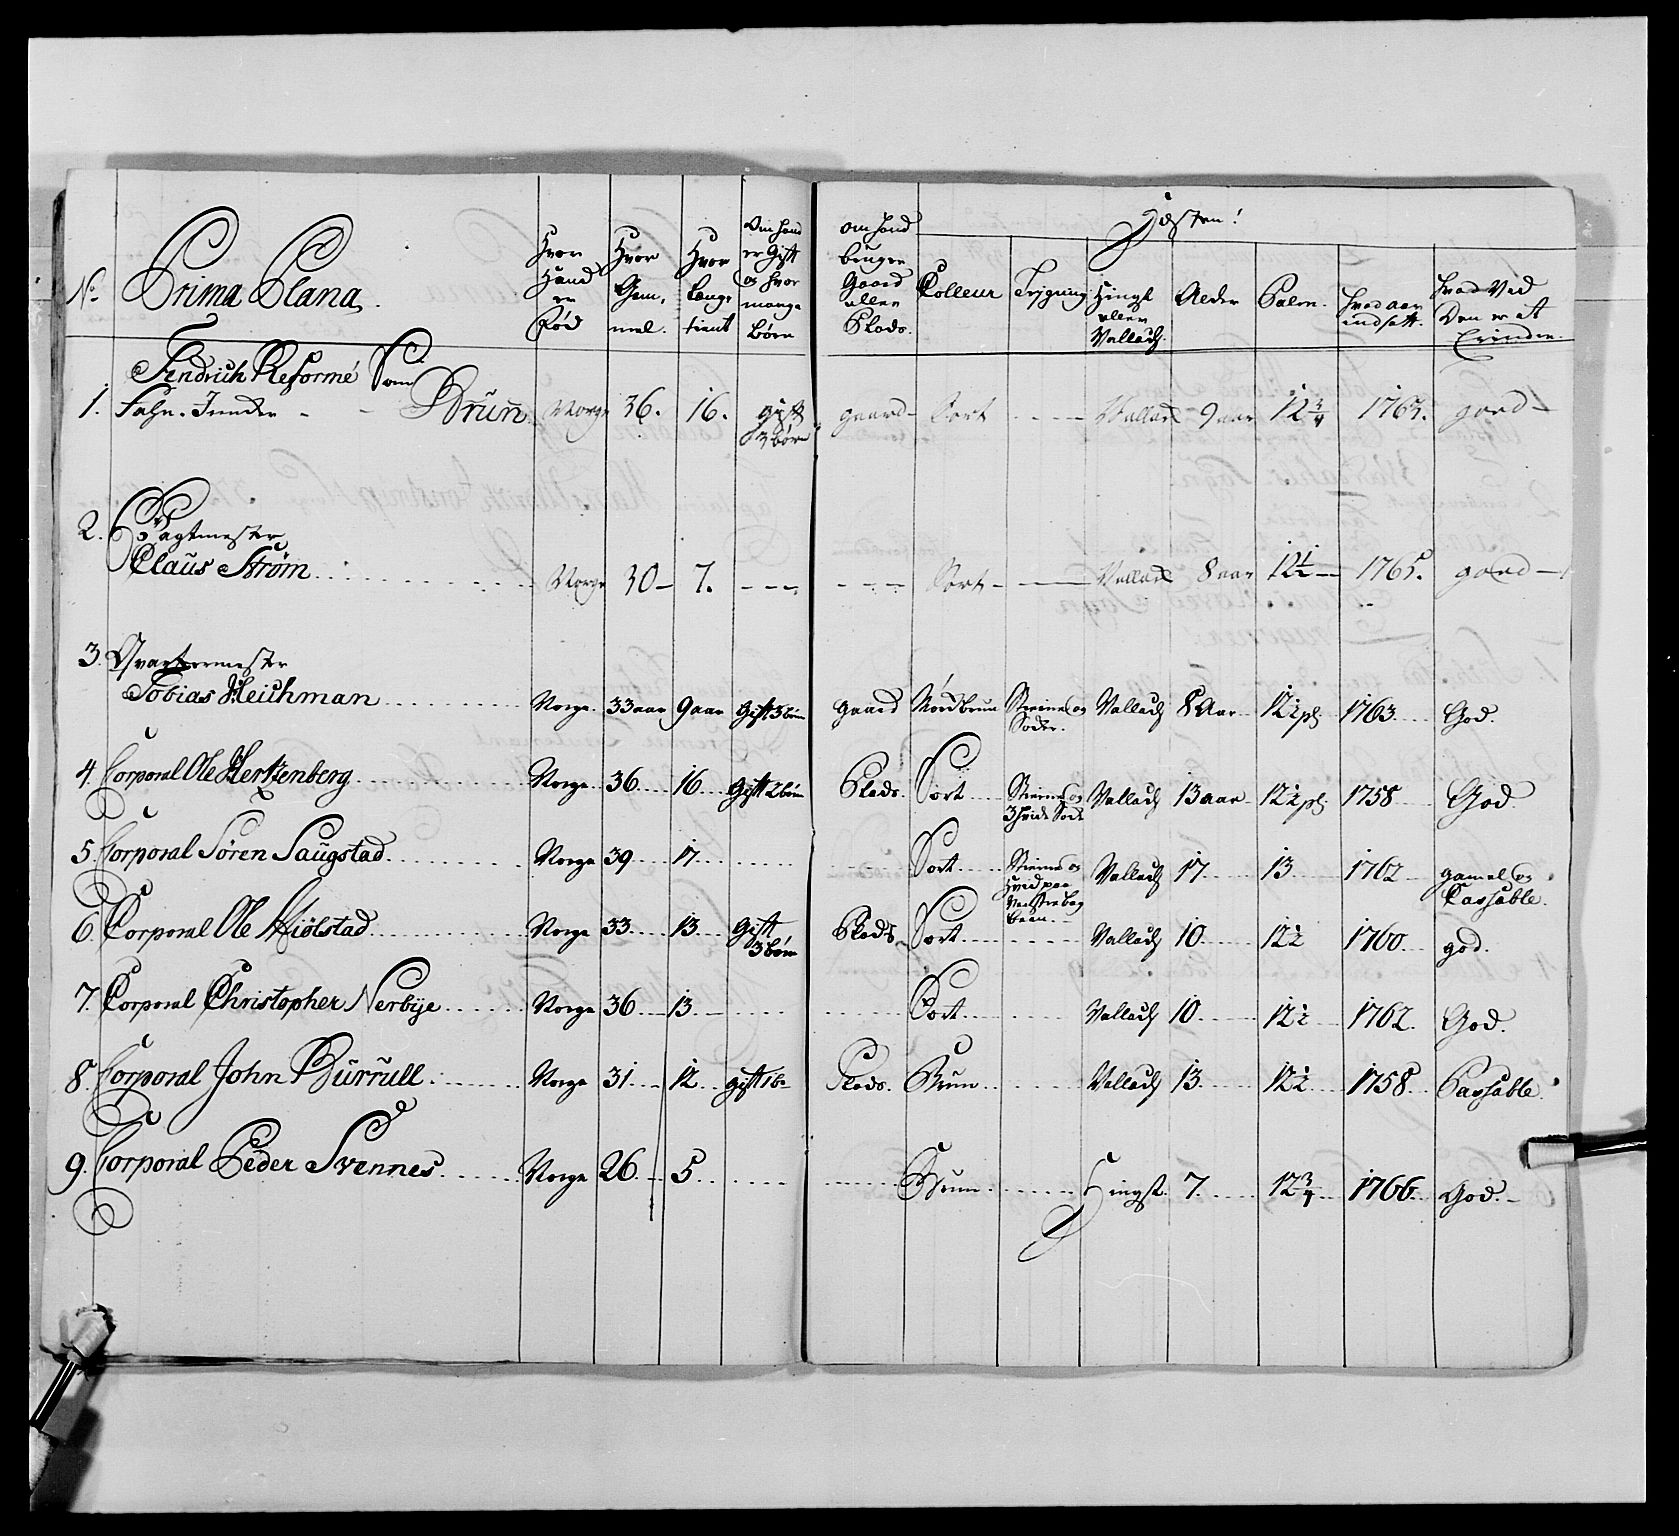 No
Prima Plana.
Hvor
Hand
er
Fød
Hvor
Gam,
mel.
Hvor
Lange
tient
Om hand
er Gift
og hvor
mange
børn
om hand
bruger
Gaard
eller
Plads.
Hæsten!
Colleur
Teigning
Hingst
eller
Vallach.
Alder
Palm.
hvad aar
indsatt.
hvad Ved
Den er at
Erindre.
Fendrich Reformé Som
1. Fahn-Juncker - - Brun Norge 36. 16. gift gaard- Sort - - - Vallach 9 aar 12 3/4 1765. goed-
3 børn
2. Vagtmester
Claus Strøm Norge 30- 7. - - - - - - Sort - Vallach 8 aar 12 1/2 1765. goed-
3. Qvartermester
Tobias Heichman Norge 33 aar 9 aar Gift 3 børn gaard Mørdbrun Stierne og Vallach 8 Aar 12 1/2 pl. 1763 God.
Soder.
4. Corporal Ole Hertzenberg Norge 36 16 Gift 2 børn Plads. Sort Stierne og Vallach 13 aar 12 1/2 pl. 1758 God.
3 hvide Sode
5. Corporal Søren Saugstad Norge 39 17 Sort Stierne og Vallach 17 13 1762 gamel og
Hvid paa Passable.
Venstre bag
been.
6. Corporal Ole Miølstad Norge 33 13 Gift Plads Sort Vallach 10 12 1/2 1760 god.
3 børn
7. Corporal Christopher Nerbye Norge 36 13 Sort Vallach 10 12 1/2 1762 God.
8. Corporal John Burrull Norge 31 12 gift 1 b- Plads. Brun Vallach 13 12 1/2 1758 Passable.
9. Corporal Peder Svennes Norge 26 5 Brun Hingst 7 12 3/4 1766 God.-